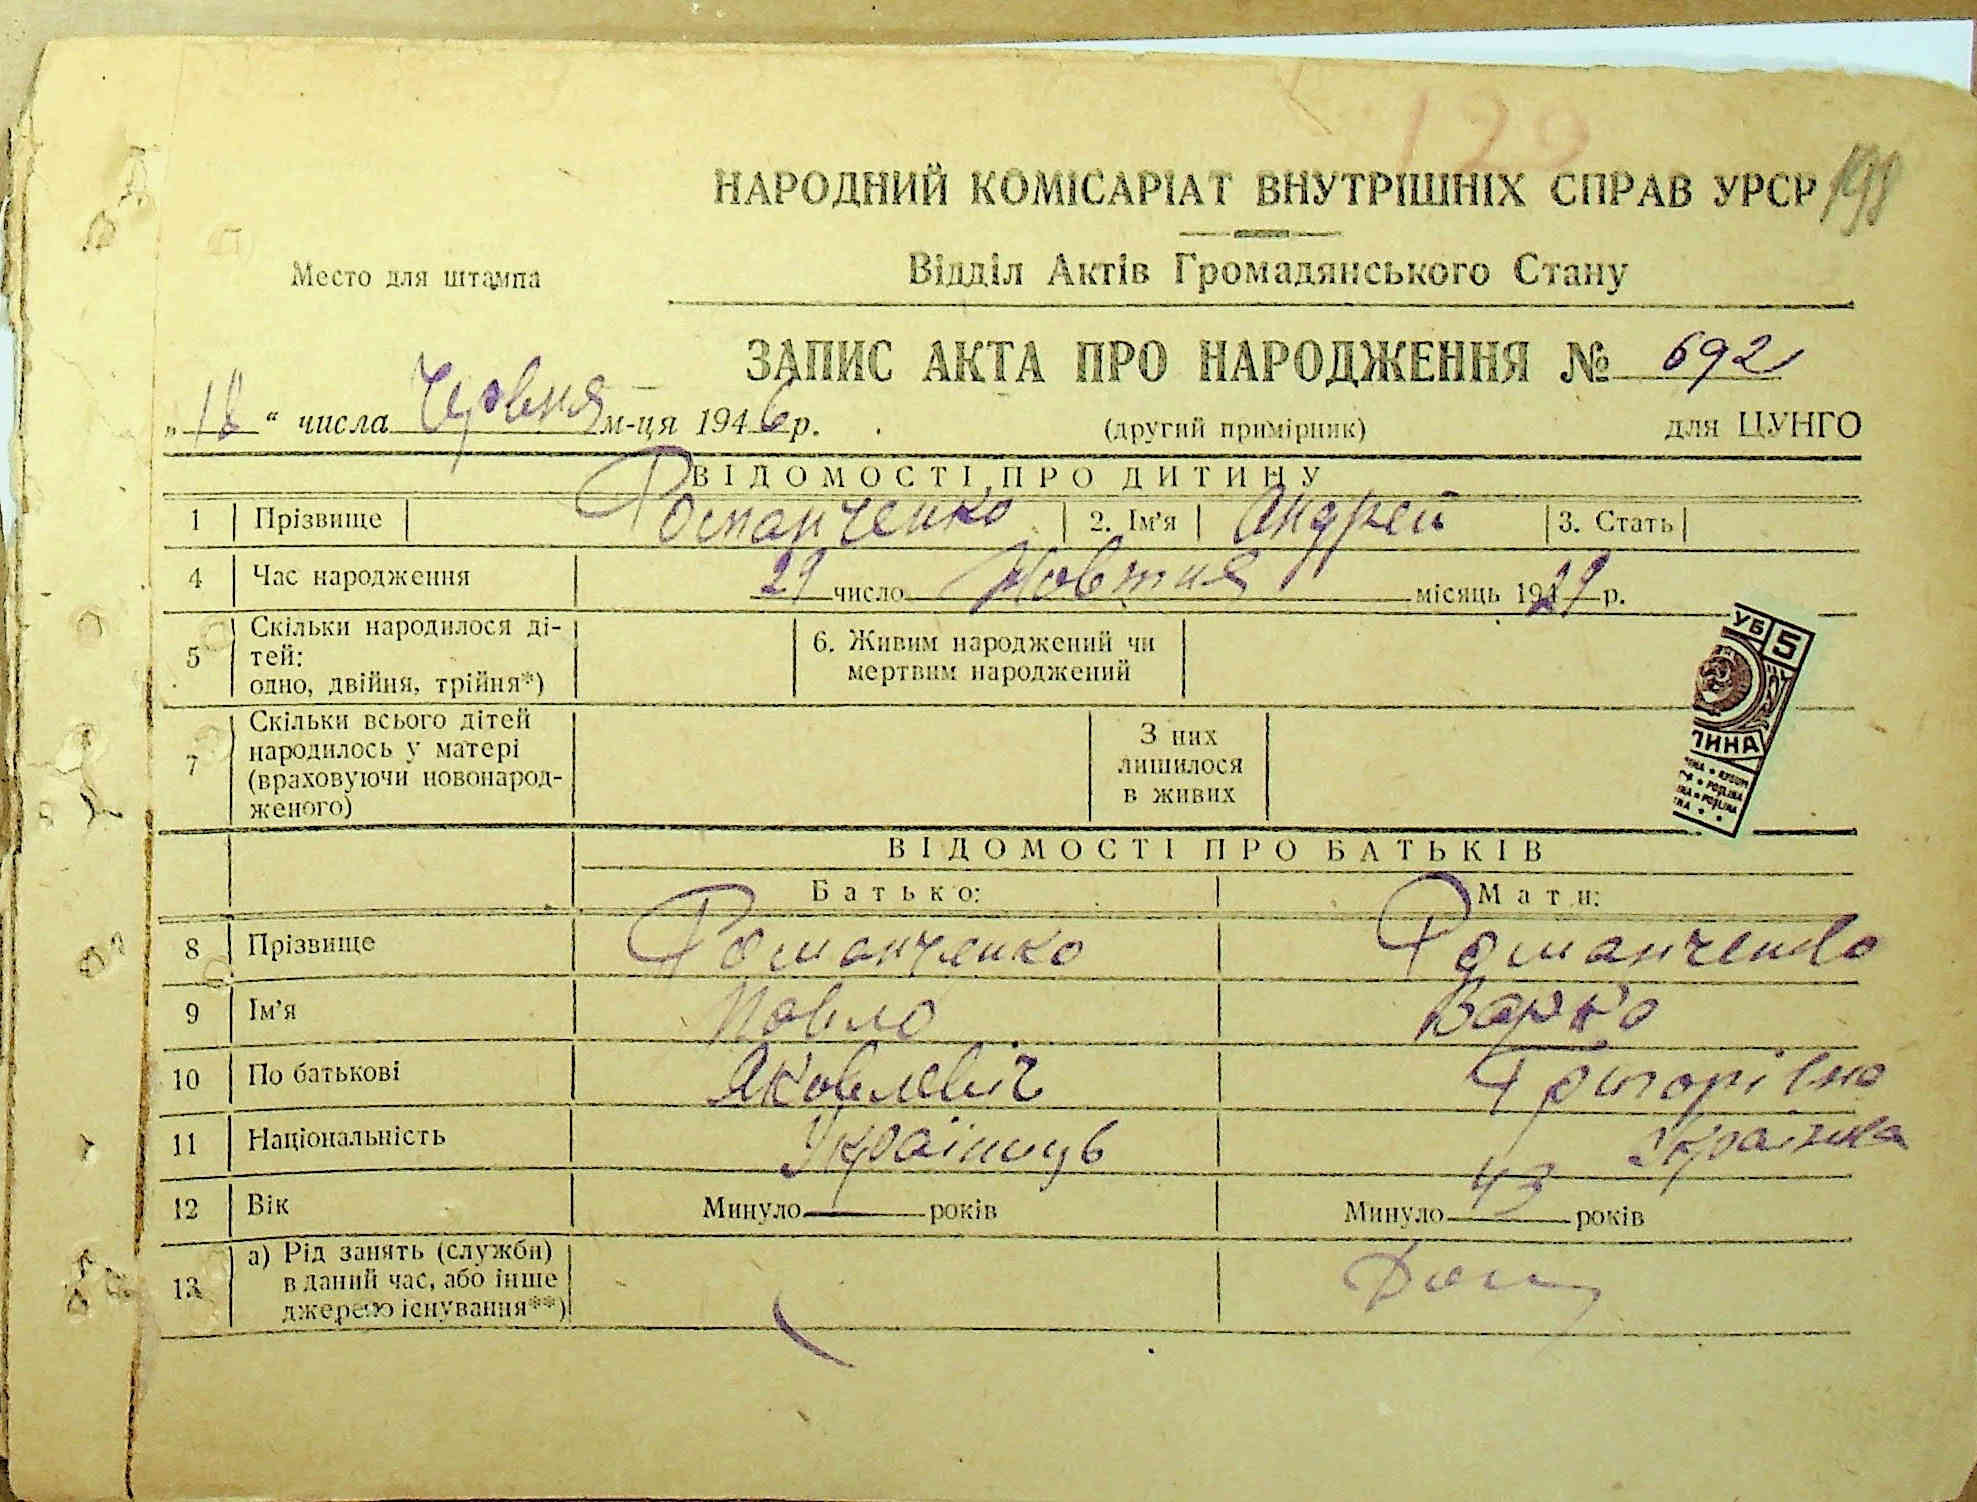 129
НАРОДНИЙ КОМІСАРІАТ ВНУТРІШНІХ СПРАВ УРСР
198
Место для штампа
Відділ Актів Громадянського Стану
ЗАПИС АКТА ПРО НАРОДЖЕННЯ № 692
„18“ числа Червня м-ця 1946 р.
(другий примірник)
для ЦУНГО
ВІДОМОСТІ ПРО ДИТИНУ
1 Прізвище Романченко 2. Ім'я Андрей 3. Стать
4 Час народження 29 число Жовтня місяць 1929 р.
5 Скільки народилося ді-
тей:
одно, двійня, трійня*)
6. Живим народжений чи
мертвим народжений
7 Скільки всього дітей
народилось у матері
(враховуючи новонарод-
женого)
З них
лишилося
в живих
УБ 5
ЛИНА
ВІДОМОСТІ ПРО БАТЬКІВ
Батько: Мати:
8 Прізвище Романченко Романченко
9 Ім'я Павло Варка
10 По батькові Яковлевіч Григорівна
11 Національність Українць Українка
12 Вік Минуло — років Минуло 43 років
13 а) Рід занять (служби)
в даний час, або інше
джерело існування**)